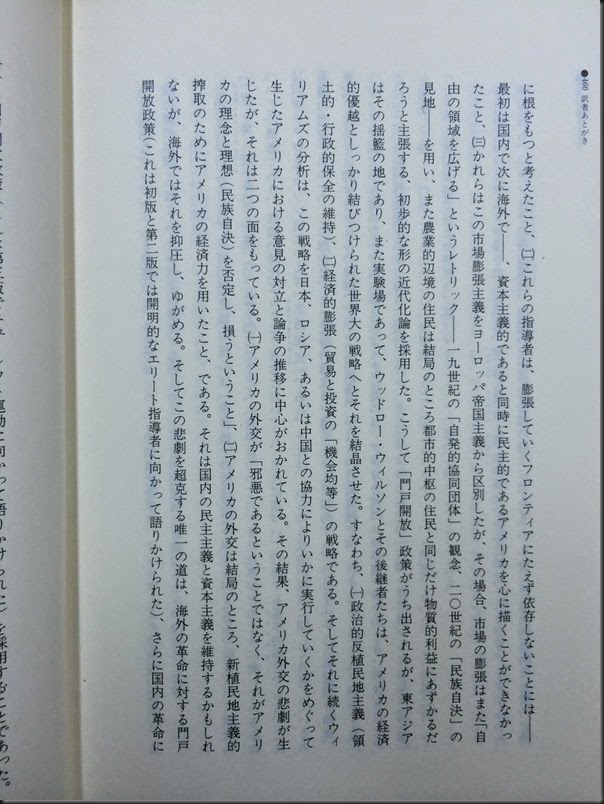 訳者あとがき
に根をもつと考えたこと、㈡これらの指導者は、膨張していくフロンティアにたえず依存しないことには――
最初は国内で次に海外で――、資本主義的であると同時に民主的であるアメリカを心に描くことができなかっ
たこと、㈢かれらはこの市場膨張主義をヨーロッパ帝国主義から区別したが、その場合、市場の膨張はまた「自
由の領域を広げる」というレトリック――一九世紀の「自発的協同団体」の観念、二〇世紀の「民族自決」の
見地――を用い、また農業的辺境の住民は結局のところ都市的中枢の住民と同じだけ物質的利益にあずかるだ
ろうと主張する、初歩的な形の近代化論を採用した。こうして「門戸開放」政策がうち出されるが、東アジア
はその揺籃の地であり、また実験場であって、ウッドロー・ウィルソンとその後継者たちは、アメリカの経済
的優越としっかり結びつけられた世界大の戦略へとそれを結晶させた。すなわち、㈠政治的反植民地主義（領
土的・行政的保全の維持）、㈡経済的膨張（貿易と投資の「機会均等」）の戦略である。そしてそれに続くウィ
リアムズの分析は、この戦略を日本、ロシア、あるいは中国との協力によりいかに実行していくかをめぐって
生じたアメリカにおける意見の対立と論争の推移に中心がおかれている。その結果、アメリカ外交の悲劇が生
じたが、それは二つの面をもっている。㈠アメリカの外交が「邪悪であるということではなく、それがアメリ
カの理念と理想（民族自決）を否定し、損うということ」、㈡アメリカの外交は結局のところ、新植民地主義的
搾取のためにアメリカの経済力を用いたこと、である。それは国内の民主主義と資本主義を維持するかもしれ
ないが、海外ではそれを抑圧し、ゆがめる。そしてこの悲劇を超克する唯一の道は、海外の革命に対する門戸
開放政策（これは初版と第二版では開明的なエリート指導者に向かって語りかけられた）、さらに国内の革命に
運動に向かって語りかけられた）を採用することであった。